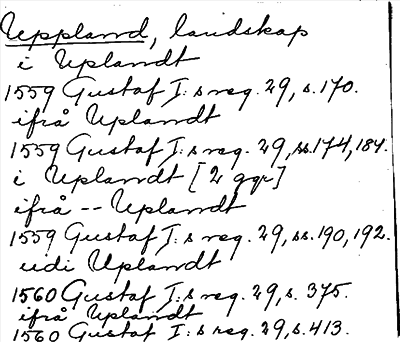 Uppland, landskap
i Uplandt
1559 Gustaf I:s reg. 29, s. 170.
ifrå Uplandt
1559 Gustaf I:s reg. 29, ss. 174, 184.
i Uplandt [2 ggr]
ifrå -- Uplandt
1559 Gustaf I:s reg. 29, ss. 190, 192.
udi Uplandt
1560 Gustaf I:s reg. 29, s. 375.
ifrå Uplandt
1560 Gustaf I:s reg. 29, s. 413.